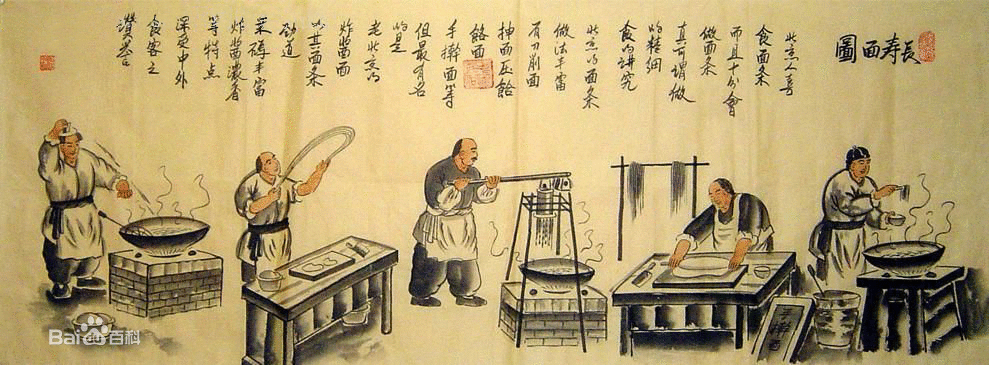 長寿面圖
北京人喜
食面条
而且十分會
做面条
真可谓做
的精细
食的讲究
北京的面条
做法丰富
有刀削面
抻面压饸
餎面
手擀面等
但最有名
的是
老北京的
炸酱面
其面条
劲道
菜碼丰富
炸酱濃香
等特点
深受中外
食客之
讚誉
手擀面
Bai百科